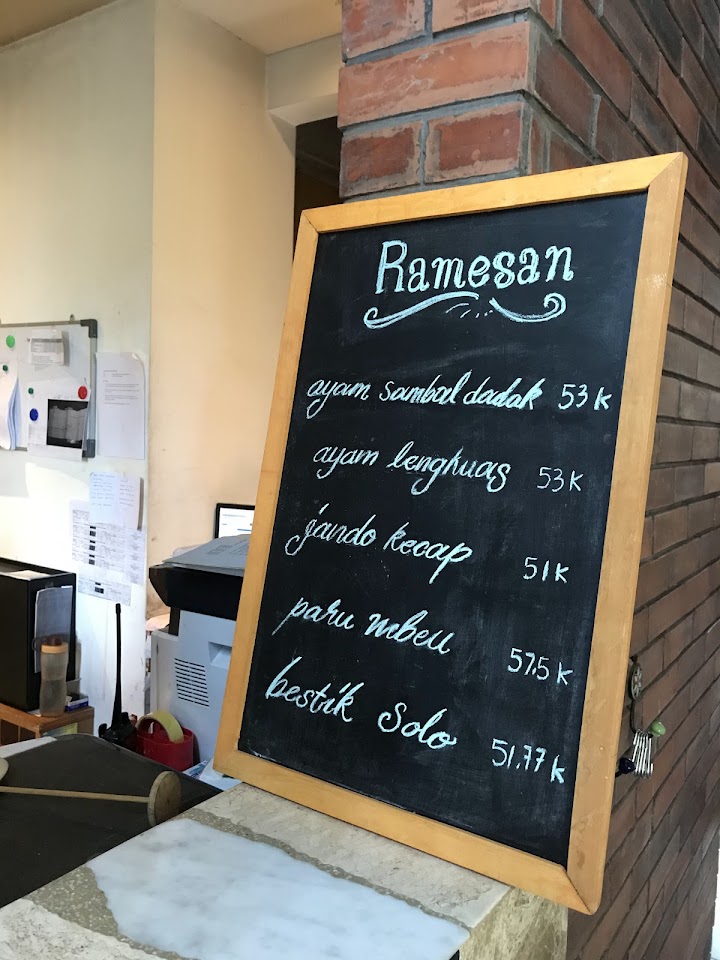 Ramesan
ayam sambal dadak 53 k
ayam lengkuas 53 k
gando kecap 51 k
paru mbeu 57.5 k
bestik Solo 51.77 k